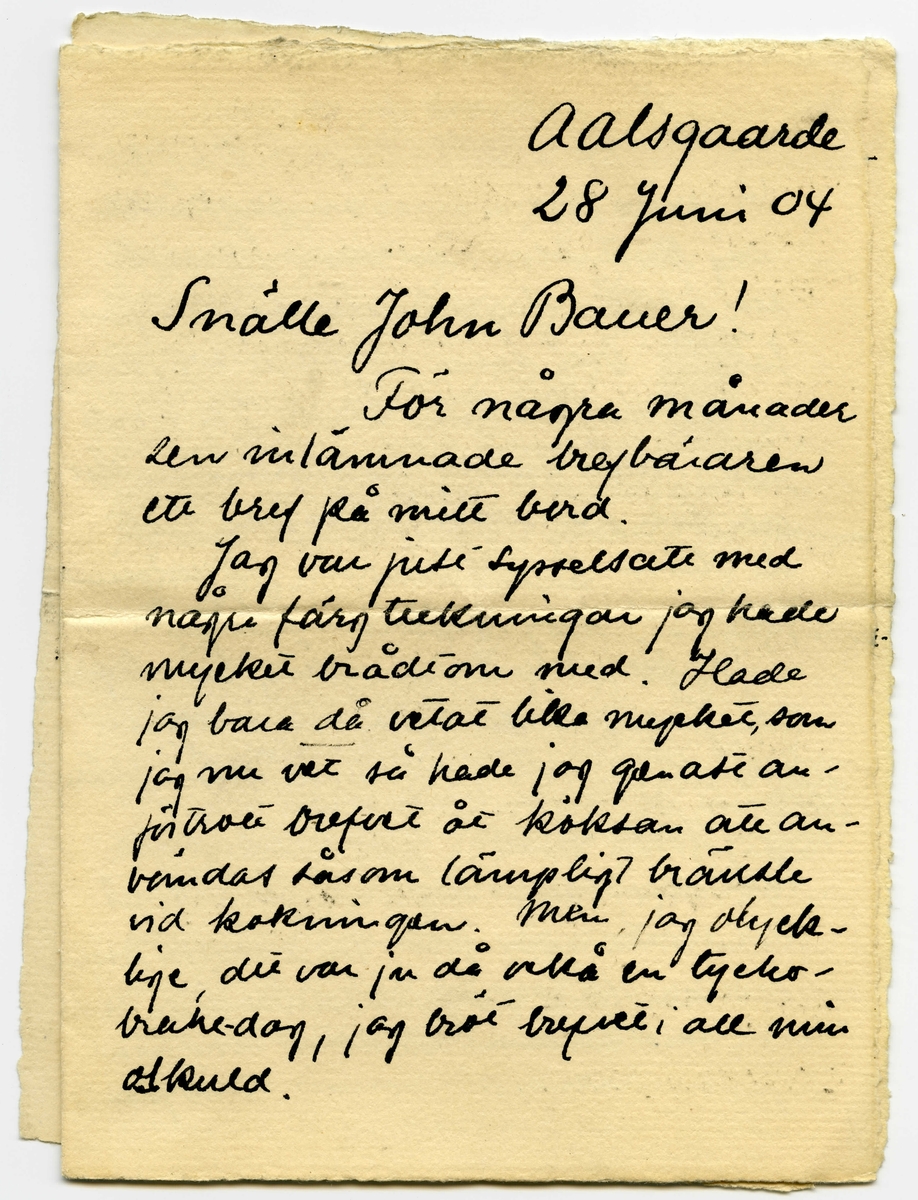 Aalsgaarde
28 Juni 04
Snälle John Bauer!
För några månader
sen inlämnade brefbäraren
ett bref på mitt bord.
Jag var just sysselsatt med
några färgteckningar jag hade
mycket bråttom med. Hade
jag bara då vetat lika mycket, som
jag nu vet så hade jag genast an-
förtrott brefvet åt köksan att an-
vändas såsom lämpligt bränsle
vid kokningen. Men, jag olyck-
lige, det var ju då också en tycho-
brahe-dag, jag bröt brefvet i all min
oskuld.